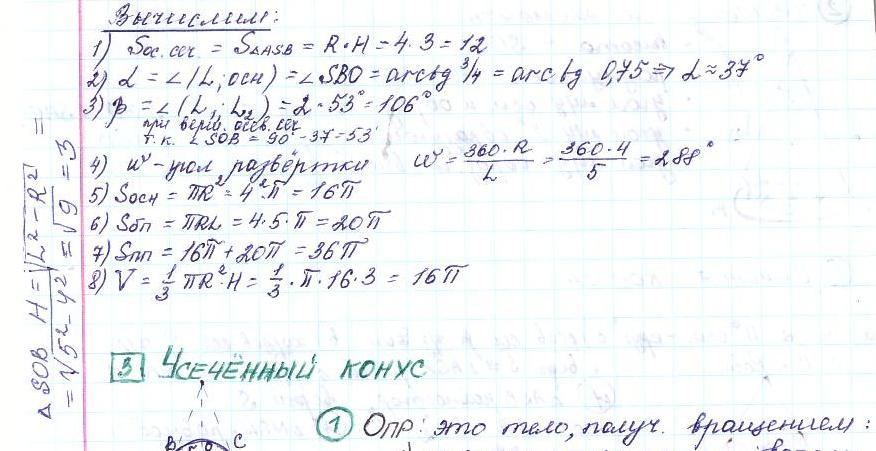 Вычислим:
1) Sос. сеч. = S△ASB = R·H = 4·3 = 12
2) α = ∠(L; осн) = ∠SBO = arcctg 3/4 = arcctg 0,75 ⇒ α ≈ 37°
3) β = ∠(L; L2) = 2·53° = 106°
при верш. осев. сеч
т.к. ∠SOB = 90°-37=53°
4) ω - угол развёртки ω = 360·R/L = 360·4/5 = 288°
5) Sосн = πR² = 4²·π = 16π
6) Sбп = πRL = 4·5·π = 20π
7) Sпп = 16π + 20π = 36π
8) V = 1/3 πR²·H = 1/3·π·16·3 = 16π
△SOB H = √L²-R² =
= √5²-4² = √9 = 3
3 Усечённый конус
1 Опр: это тело, получ. вращением:
B C